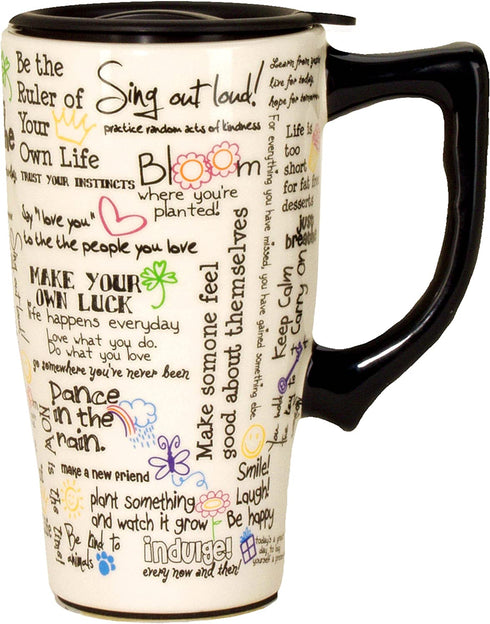 Be the
Ruler of
Your
Own Life
TRUST YOUR INSTINCTS
Sing out loud!
practice random acts of kindness
Bloom
where you're
planted!
Say "I love you"
to the the people you love
MAKE YOUR
OWN LUCK
life happens everyday
Love what you do.
Do what you love
go somewhere you've never been
Dance
in the
rain.
make a new friend
plant something
and watch it grow
Be kind to
animals
indulge!
every now and then!
Make somone feel
good about themselves
For everything you have missed, you have gained something else
Learn from
live for today
hope for tomorrow
Life is
too
short
for fat
desserts
just
breathe
Keep Calm
Carry on
Smile!
Laugh!
Be happy
today's a
day to
yourself a